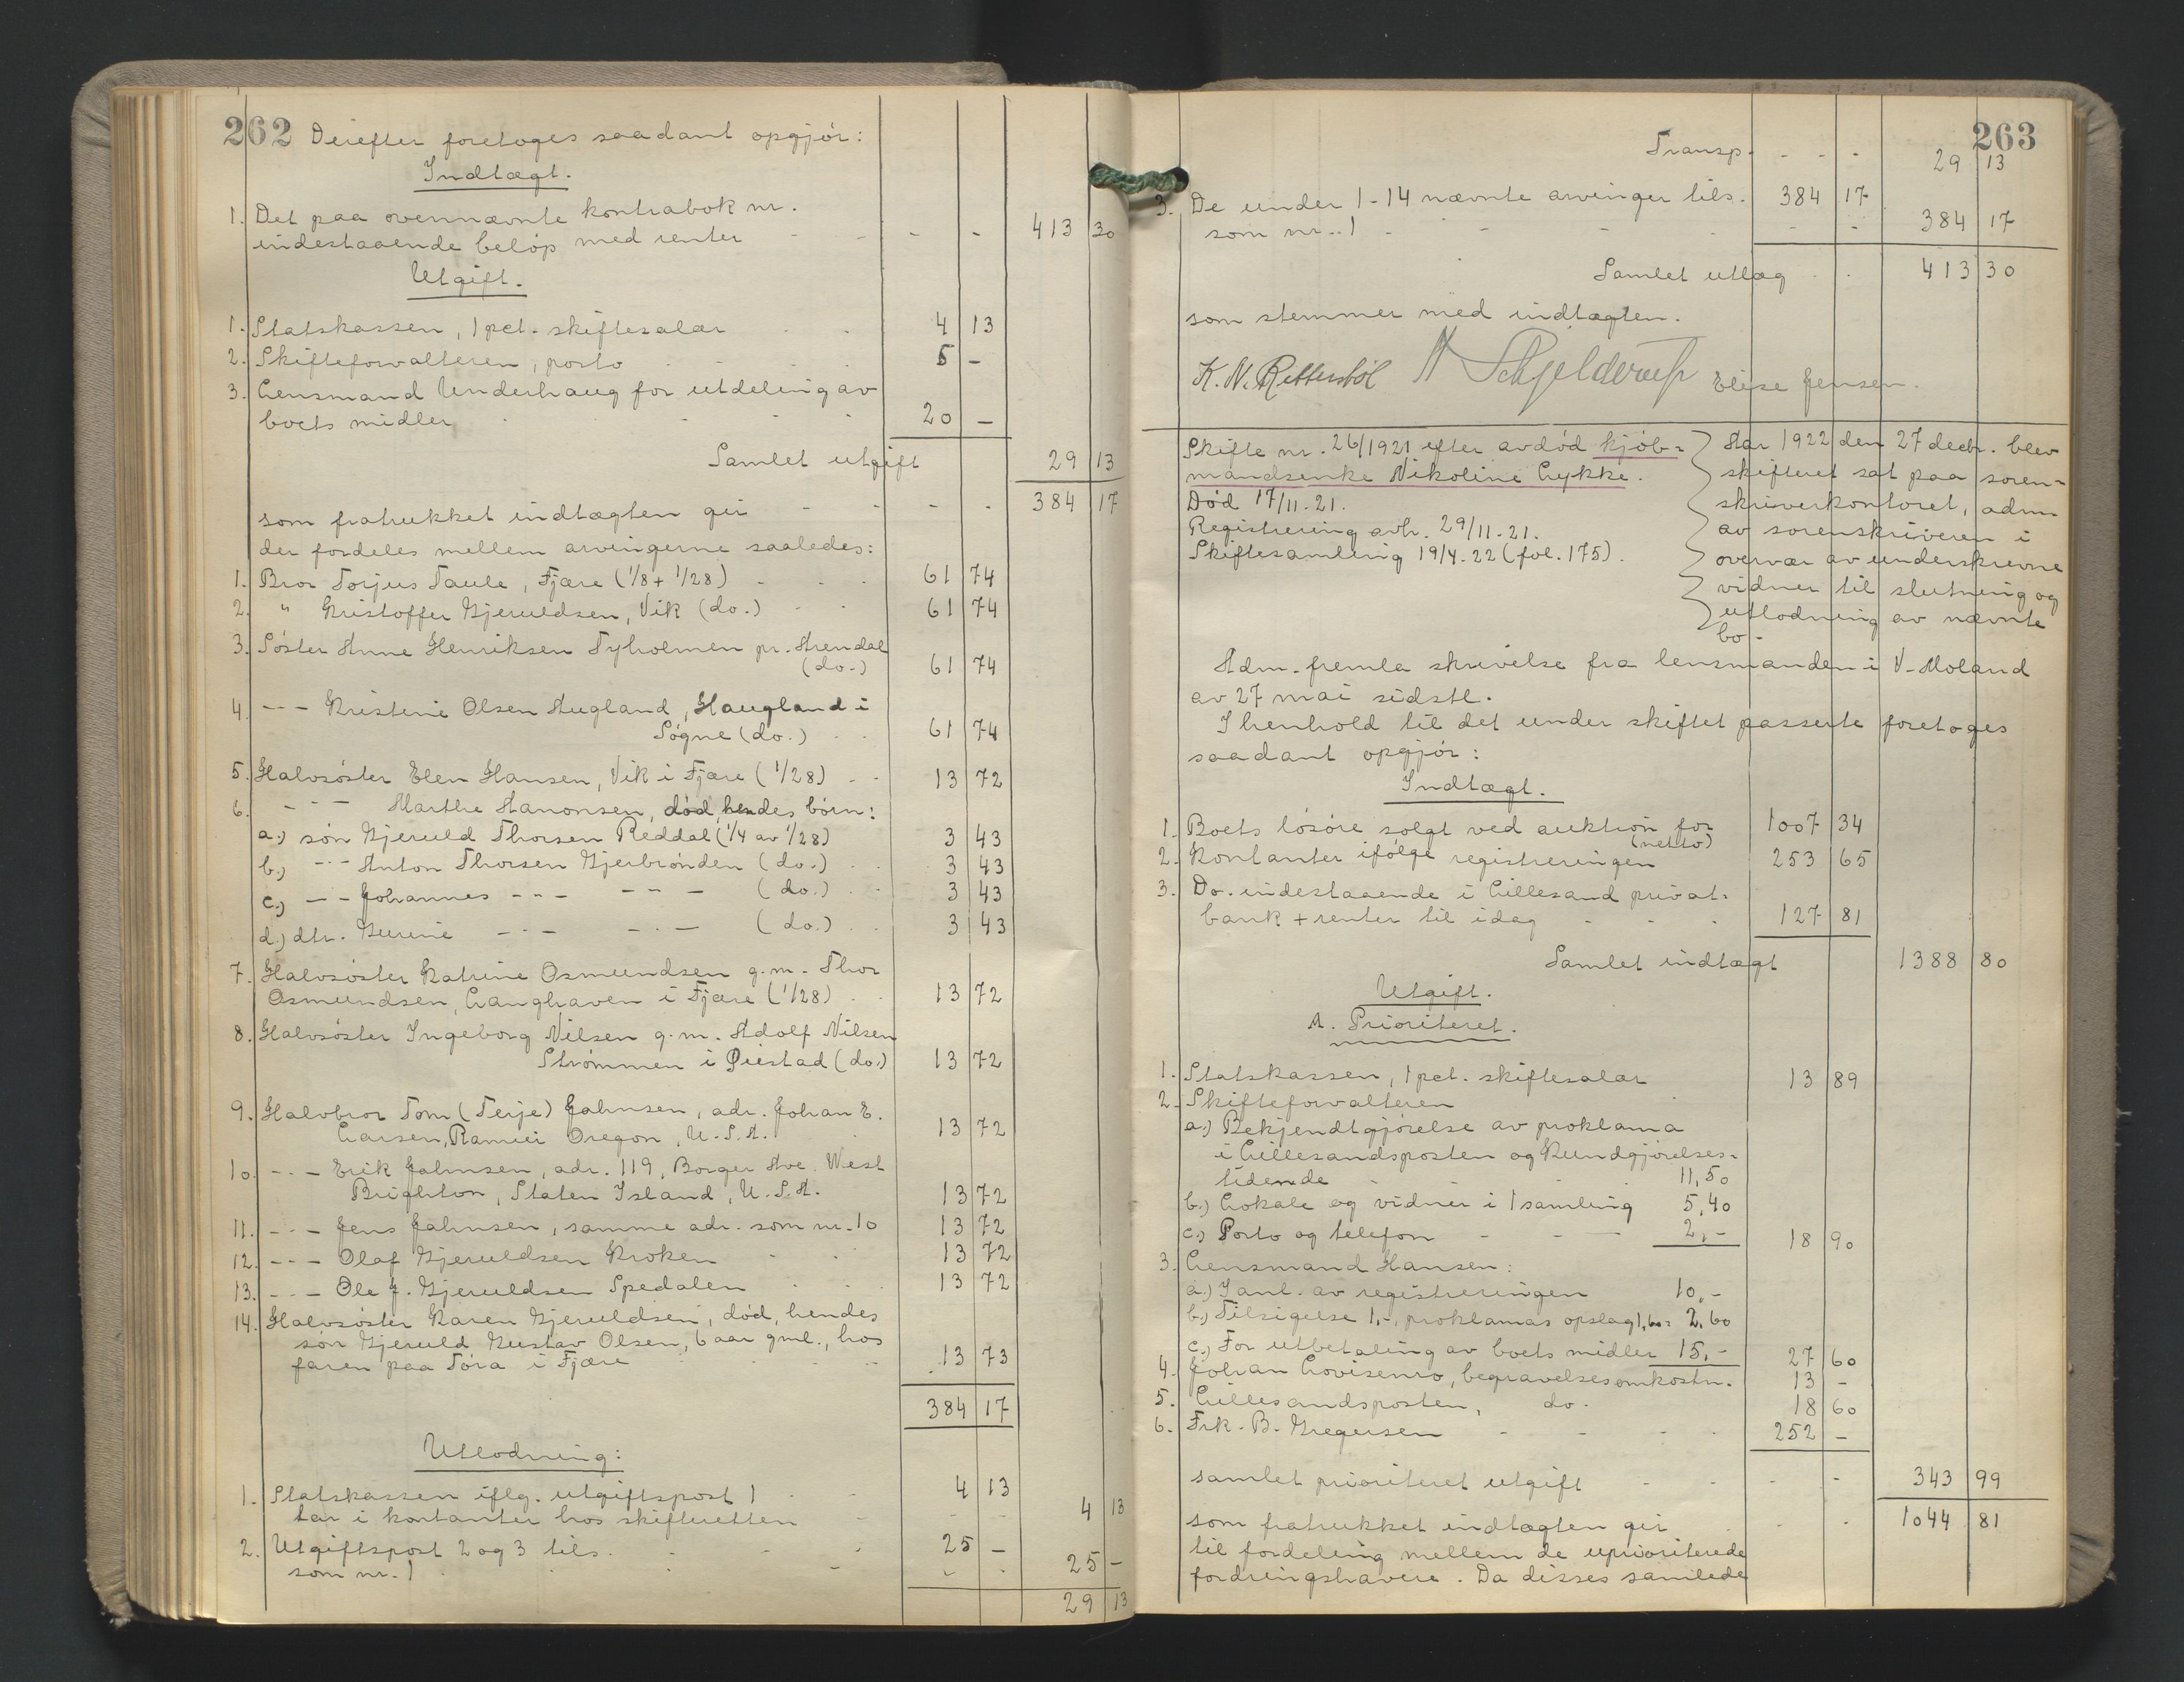 262 Derefter foretoges saadant opgjör:
Indtægt.
1. Det paa ovennævnte kontrabok nr.
indestaaende belöp med renter - - - 413 30
Utgift.
1. Statskassen, 1 pct. skiftesalær 4 13
2. Skifteforvalteren, porto 5 -
3. Lensmand Underhaug for utdeling av
boets midler 20 -
Samlet utgift 29 13
som fratrukket indtægten gir - - - - 384 17
der fordeles mellem arvingerne saaledes:
1. Bror Torjus Taule, Fjære (1/8 + 1/28) 61 74
2. " Kristoffer Gjeruldsen, Vik (do.) 61 74
3. Söster Anne Henriksen Tyholmen pr. Arendal
(do.) 61 74
4. - - - Kristine Olsen Augland, Haugland i
Sögne (do.) 61 74
5. Halvsöster Elen Hansen, Vik i Fjære (1/28) 13 72
6. - - - Marthe Aanonsen, död, hendes börn:
a.) sön Gjeruld Thorsen Reddal (1/4 av 1/28) 3 43
b.) - - - Anton Thorsen Gjerbrönden (do.) 3 43
c.) - - Johannes - - - - - - (do.) 3 43
d.) dtr. Gurine - - - - - - (do.) 3 43
7. Halvsöster Katrine Osmundsen g.m. Thor
Osmundsen, Langhaven i Fjære (1/28) 13 72
8. Halvsöster Ingeborg Nilsen g.m. Adolf Nilsen
Strömmen i Öiestad (do.) 13 72
9. Halvbror Tom (Terje) Jahnsen, adr. Johan E.
Larsen, Oregon, U.S.A. 13 72
10. - - - Erik Jahnsen, adr. 119, Borger Ave. West
Brighton, Staten Island, U.S.A. 13 72
11. - - - Jens Jahnsen, samme adr. som nr. 10 13 72
12. - - - Olaf Gjeruldsen Kroken 13 72
13. - - - Ole J. Gjeruldsen Spedalen 13 72
14. Halvsöster Karen Gjeruldsen, död, hendes
sön Gjeruld Gustav Olsen, 6 aar gml., hos
faren paa Töra i Fjære 13 73
384 17
Utlodning:
1. Statskassen iflg. utgiftspost 1 4 13
tar i kontanter hos skifteretten 4 13
2. Utgiftspost 2 og 3 tils. 25 -
som nr. 1 25 -
29 13
263
Transp. - - - 29 13
3. De under 1-14 nævnte arvinger tils. 384 17
som nr. 1 - - - 384 17
Samlet utlæg 413 30
som stemmer med indtægten.
K. N. Rettersböl A Schjelderup Elise Jensen.
Skifte nr. 26/1921 efter avdöd kjöb-
mandsenke Nikoline Lykke.
Död 17/11-21.
Registrering avh. 29/11-21.
Skiftesamling 19/4-22 (fol. 175).
Aar 1922 den 27 decbr. blev
skifteret sat paa soren-
skriverkontoret, adm.
av sorenskriveren i
overvær av underskrevne
vidner til slutning og
utlodning av nævnte
bo.
Adm. fremla skrivelse fra lensmanden i V-Moland
av 27 mai sidstl.
I henhold til det under skiftet passerte foretoges
saadant opgjör:
Indtægt.
1. Boets lösöre solgt ved auktion for
(netto) 1007 34
2. Kontanter ifölge registreringen 253 65
3. Do. indestaaende i Lillesand privat-
bank + renter til idag 127 81
Samlet indtægt 1388 80
Utgift.
A. Prioriteret.
1. Statskassen, 1 pct. skiftesalær 13 89
2. Skifteforvalteren
a.) Bekjendtgjörelse av proklama
i Lillesandsposten og Kundgjörelses-
tidende 11,50
b.) Lokale og vidner i 1 samling 5,40
c.) Porto og telefon - - - 2,- 18 90
3. Lensmand Hansen:
a.) I anl. av registreringen 10,-
b.) Tilsigelse 1,-, proklamas opslag 1,60 = 2,60
c.) For utbetaling av boets midler 15,- 27 60
4. Johan Lovisenro, begravelsesomkostn. 13 -
5. Lillesandsposten, do. 18 60
6. Frk. B. Gregersen - - - 252 -
samlet prioriteret utgift - - - 343 99
som fratrukket indtægten gir - - 1044 81
til fordeling mellem de uprioriterede
fordringshavere. Da disses samlede